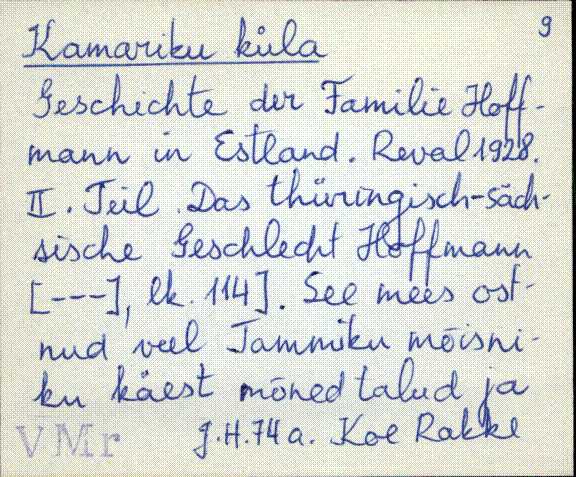 9
Kamariku küla
Geschichte der Familie Hoff-
mann in Estland. Reval 1928.
II. Teil. Das thüringisch-säch-
sische Geschlecht Hoffmann
[---], lk. 114]. See mees ost-
nud veel Tammiku mõisni-
ku käest mõned talud ja
VMr J.H. 74 a. Koe Rakke